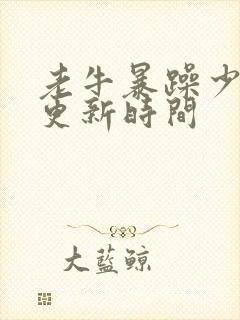 老牛暴躁少
更新時間
大藍鯨